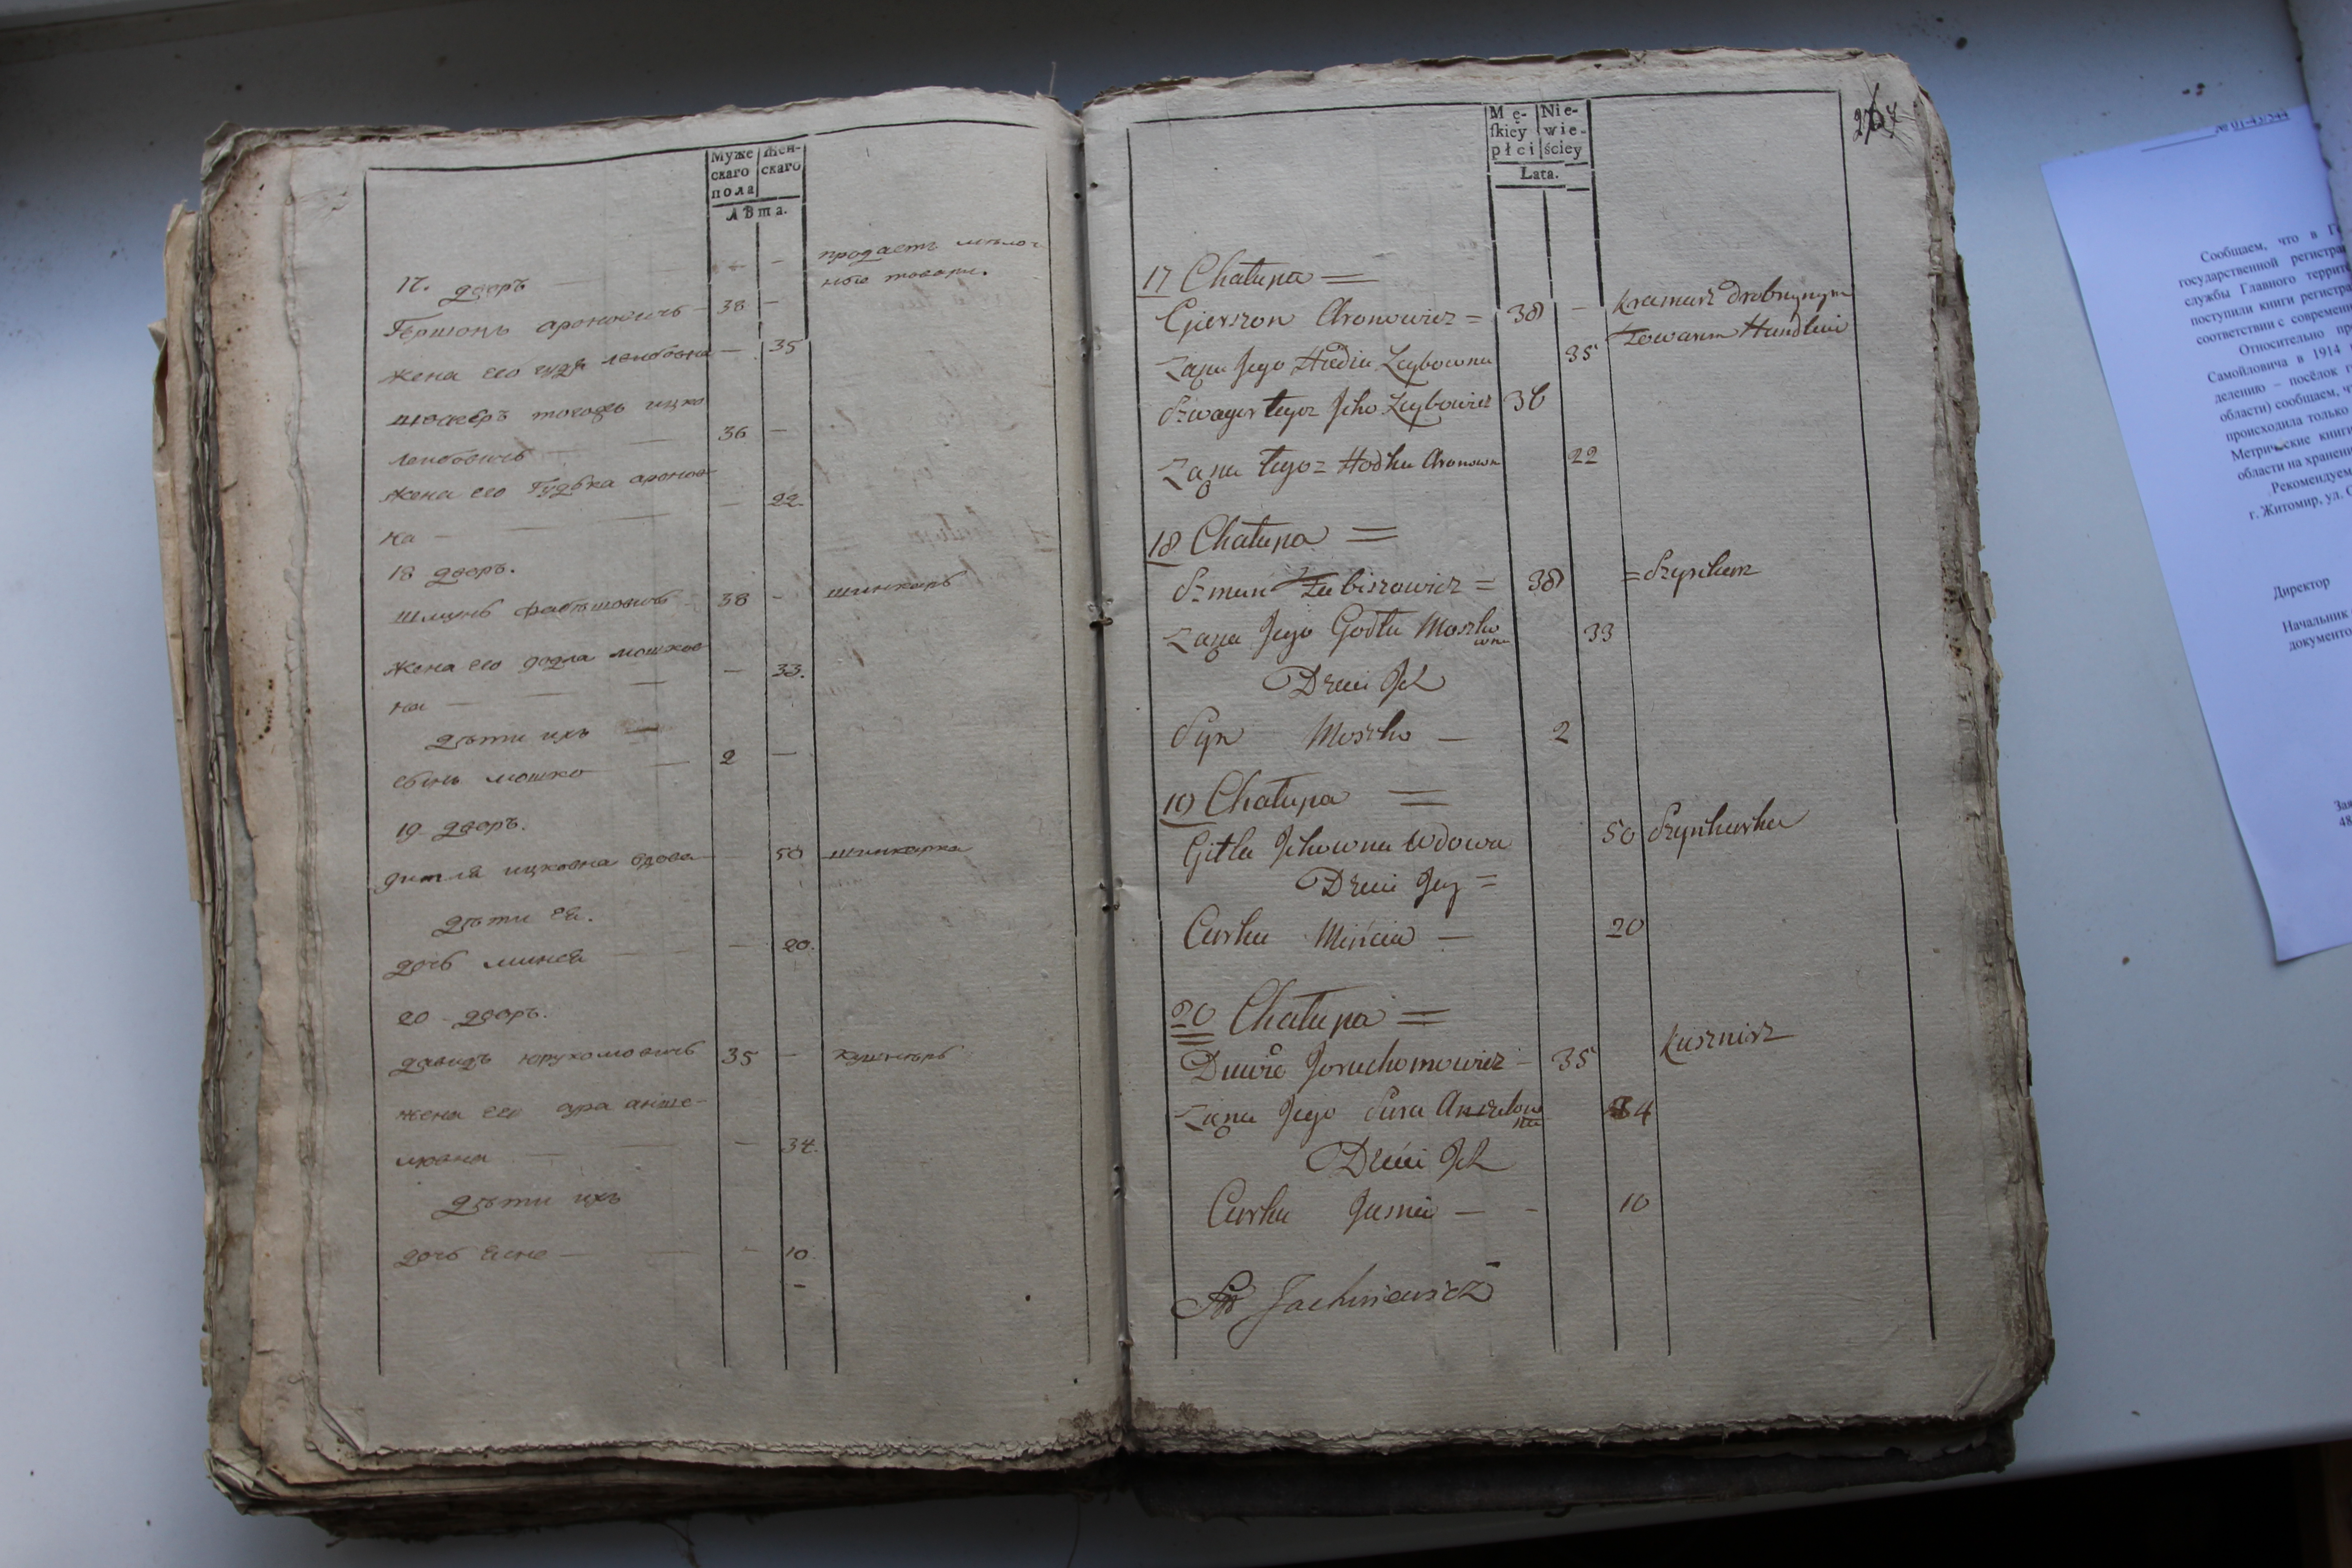 Муже Жен-
скаго скаго
пола
Лѣта.
17. дворъ продаетъ мѣлоч
ные товари.
Гершонъ ароновичъ 38 —
жена его гудя лейбовна — 35
шваґеръ тогожъ ицко
лейбовичъ 36 —
жена его Гудька аронов
на — 22
18 дворъ.
38 — шинкаръ
жена его годла мошков
на — 33.
дѣти ихъ
сынъ мошко 2 —
19 дворъ.
гитля ицковна вдова 50 шинкарка
дѣти ея.
дочь минся — 20.
20 дворъ.
давидъ юрухомовичъ 35 — кушнѣръ
жена его сура анше-
лювна — 34.
дѣти ихъ
дочь ясне — 10.
Mę- Nie-
ſkiey wie-
płci ściey
Lata.
267
17 Chałupa =
Gierszon Aronowicz = 38 — Kramarz drobnynym
Żąna Jego Hudia Leybowna 35 Towarem Handluie
Szwagier tegoz Jcko Leybowicz 36
Żąna tegoz Hodka Aronowna 22
18 Chałupa =
38 = Szynkarz
Żąna Jego Godła Moszko
wna 33
Dzieci Jch
Syn Moszko — 2
19 Chałupa =
Gitla Jckowna Wdowa 50 Szynkarka
Dzieci Jey =
Curka Mińcia — 20
20 Chałupa =
Dawid Joruchomowicz — 35 Kusznirz
Żąna Jego Sura Anszelow
na 34
Dzieci Jch
Curka Jasnia — - 10
Jachniewicz
№ 01-43/544
Сообщаем, что в Г
государственной регистра
службы Главного террит
поступили книги регистра
соответствии с современ
Относительно пр
Самойловича в 1914
делению – посёлок г
области) сообщаем, ч
происходила только
Метрические книги
области на хранени
Рекомендуем
г. Житомир, ул. О
Директор
Начальник
документо
Зая
48